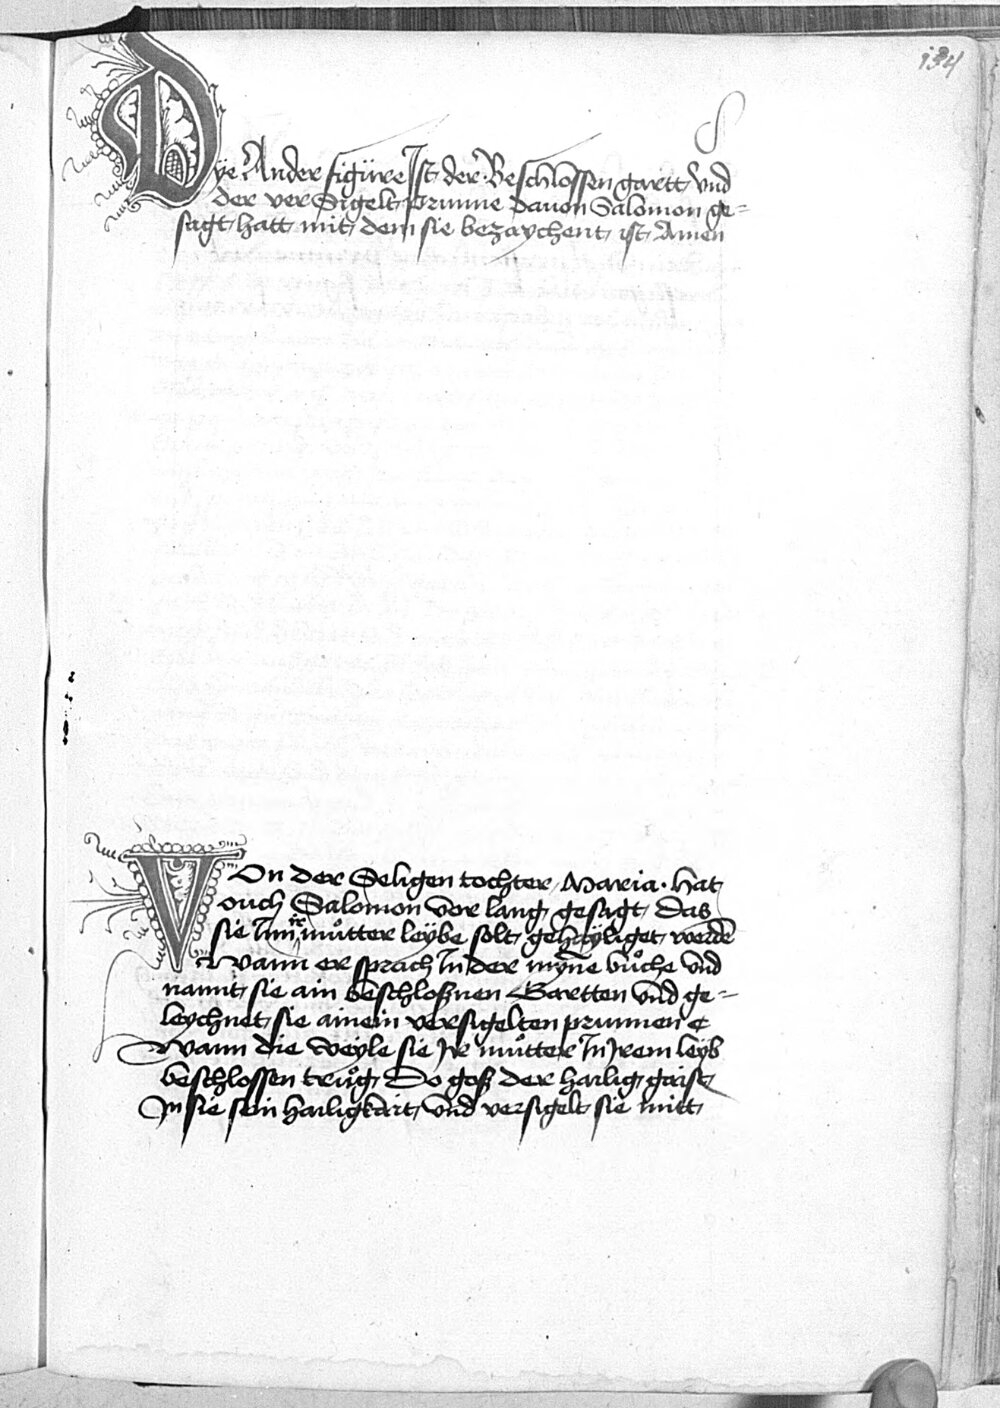 134
Dye Ander figüre Ist der Beschlossen gartt vnd
der ver Sigelt prunne dauon Salomon ge=
sagt hatt mit dem sie bezaychent ist Amen
VOn der Seligen tochter Maria · hat
ouch Salomon vor lang gesagt das
sie Im ir můtter leybe solt gehayliget werden
Wann er sprach In der myne bůche vnd
nannt sie ain beschloßnen Gartten vnd ge=
leychnet sie ainem versigelten prunnen
Wann die weyle sie Jr můtter In Jrem leyb
beschlossen trůg Do goß der hailig gaist
In sie sein hailigkait vnd versigelt sie mitt